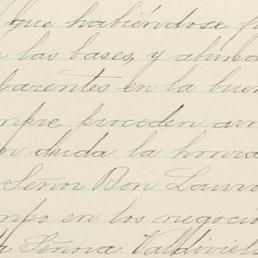 que habiéndose
las bases, y
parentes en la buen
mpre proceden am
n duda la honra
Señor Don Lauro
mpo en los negocio
Señora Valdiviels